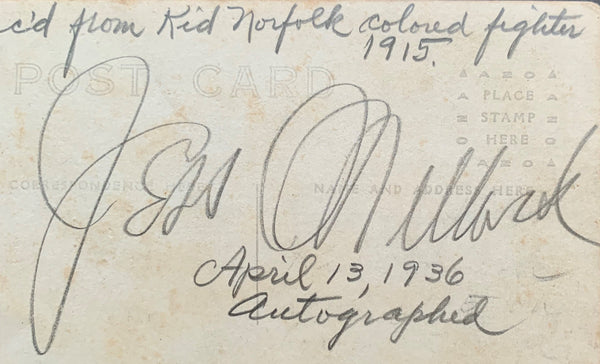 c'd from Kid Norfolk colored fighter
1915.
POST CARD
AZO
PLACE
STAMP
HERE
AZO
CORRESPONDENCE HERE
NAME AND ADDRESS HERE
Jess Willard
April 13, 1936
Autographed